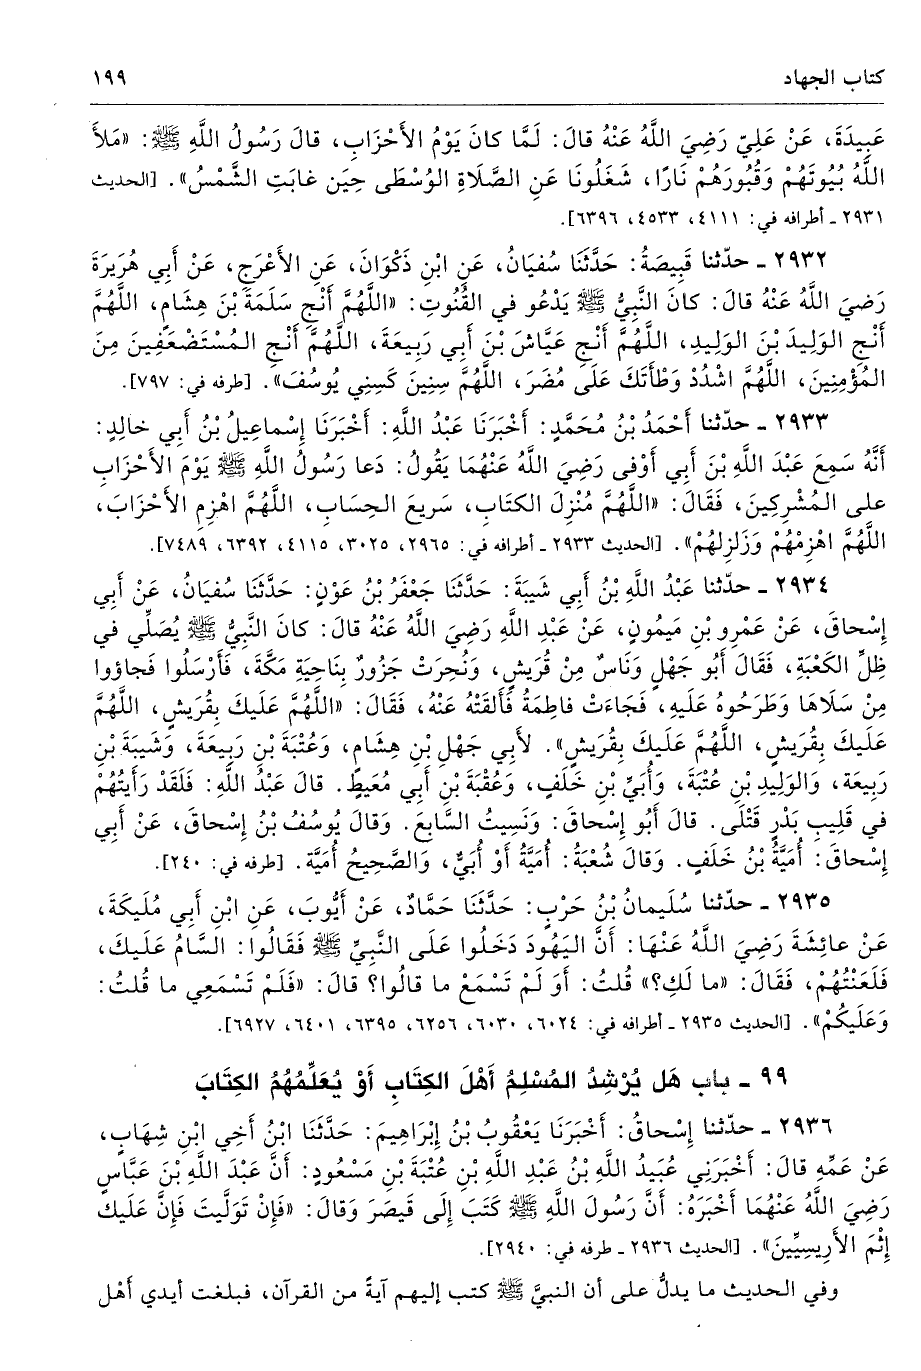 كتاب الجهاد ١٩٩
عَبِيدَةَ، عَنْ عَلِيّ رَضِيَ اللَّهُ عَنْهُ قالَ: لَمَّا كانَ يَوْمُ الأَحْزَابِ، قالَ رَسُولُ اللَّهِ ﷺ: «مَلأَ
اللَّهُ بُيُوتَهُمْ وَقُبُورَهُمْ نَارًا، شَغَلُونَا عَنِ الصَّلَاةِ الوُسْطَى حِينَ غابَتِ الشَّمْسُ». [الحديث
٢٩٣١ ـ أطرافه في: ٤١١١، ٤٥٣٣، ٦٣٩٦].
٢٩٣٢ ـ حدّثنا قَبِيصَةُ: حَدَّثَنَا سُفيَانُ، عَنِ ابْنِ ذَكْوَانَ، عَنِ الأَعْرَجِ، عَنْ أَبِي هُرَيرَةَ
رَضِيَ اللَّهُ عَنْهُ قالَ: كانَ النَّبِيُّ ﷺ يَدْعُو في القُنُوتِ: «اللَّهُمَّ أَنْجِ سَلَمَةَ بْنَ هِشَامٍ، اللَّهُمَّ
أَنْجِ الوَلِيدَ بْنَ الوَلِيدِ، اللَّهُمَّ أَنْجِ عَيَّاشَ بْنَ أَبِي رَبِيعَةَ، اللَّهُمَّ أَنْجِ المُسْتَضْعَفِينَ مِنَ
المُؤْمِنِينَ، اللَّهُمَّ اشْدُدْ وَطْأَتَكَ عَلَى مُضَرَ، اللَّهُمَّ سِنِينَ كَسِنِي يُوسُفَ». [طرفه في: ٧٩٧].
٢٩٣٣ ـ حدّثنا أَحْمَدُ بْنُ مُحَمَّدٍ: أَخْبَرَنَا عَبْدُ اللَّهِ: أَخْبَرَنَا إِسْماعِيلُ بْنُ أَبِي خالِدٍ:
أَنَّهُ سَمِعَ عَبْدَ اللَّهِ بْنَ أَبِي أَوْفى رَضِيَ اللَّهُ عَنْهُمَا يَقُولُ: دَعا رَسُولُ اللَّهِ ﷺ يَوْمَ الأَحْزَابِ
على المُشْرِكِينَ، فَقَالَ: «اللَّهُمَّ مُنْزِلَ الكتَابِ، سَرِيعَ الحِسَابِ، اللَّهُمَّ اهْزِمِ الأَحْزَابَ،
اللَّهُمَّ اهْزِمْهُمْ وَزَلزِلهُمْ». [الحديث ٢٩٣٣ ـ أطرافه في: ٢٩٦٥، ٣٠٢٥، ٤١١٥، ٦٣٩٢، ٧٤٨٩].
٢٩٣٤ ـ حدّثنا عَبْدُ اللَّهِ بْنُ أَبِي شَيبَةَ: حَدَّثَنَا جَعْفَرُ بْنُ عَوْنٍ: حَدَّثَنَا سُفيَانُ، عَنْ أَبِي
إِسْحاقَ، عَنْ عَمْرِو بْنِ مَيمُونٍ، عَنْ عَبْدِ اللَّهِ رَضِيَ اللَّهُ عَنْهُ قالَ: كانَ النَّبِيُّ ﷺ يُصَلِّي في
ظِلِّ الكَعْبَةِ، فَقَالَ أَبُو جَهْلٍ وَنَاسٌ مِنْ قُرَيشٍ، وَنُحِرَتْ جَزُورٌ بِنَاحِيَةِ مَكَّةَ، فَأَرْسَلُوا فَجاؤوا
مِنْ سَلَاهَا وَطَرَحُوهُ عَلَيهِ، فَجَاءَتْ فاطِمَةُ فَأَلقَتْهُ عَنْهُ، فَقَالَ: «اللَّهُمَّ عَلَيكَ بِقُرَيشٍ، اللَّهُمَّ
عَلَيكَ بِقُرَيشٍ، اللَّهُمَّ عَلَيكَ بِقُرَيشٍ». لأَبِي جَهْلِ بْنِ هِشَامٍ، وَعُتْبَةَ بْنِ رَبِيعَةَ، وَشَيبَةَ بْنِ
رَبِيعة، وَالوَلِيدِ بْنِ عُتْبَةَ، وَأُبَيِّ بْنِ خَلَفٍ، وَعُقْبَةَ بْنِ أَبِي مُعَيطٍ. قالَ عَبْدُ اللَّهِ: فَلَقَدْ رَأَيتُهُمْ
في قَلِيبِ بَدْرٍ قَتْلَى. قالَ أَبُو إِسْحاقَ: وَنَسِيتُ السَّابعَ. وَقالَ يُوسُفُ بْنُ إِسْحاقَ، عَنْ أَبِي
إِسْحاقَ: أُمَيَّةُ بْنُ خَلَفٍ. وَقالَ شُعْبَةُ: أُمَيَّةُ أَوْ أُبَيٌّ، وَالصَّحِيحُ أُمَيَّة. [طرفه في: ٢٤٠].
٢٩٣٥ ـ حدّثنا سُلَيمانُ بْنُ حَرْبٍ: حَدَّثَنَا حَمَّادٌ، عَنْ أَيُّوبَ، عَنِ ابْنِ أَبِي مُلَيكَةَ،
عَنْ عائِشَةَ رَضِيَ اللَّهُ عَنْهَا: أَنَّ اليَهُودَ دَخَلُوا عَلَى النَّبِيِّ ﷺ فَقَالُوا: السَّامُ عَلَيكَ،
فَلَعَنْتُهُمْ، فَقَالَ: «ما لَكِ؟» قُلتُ: أَوَ لَمْ تَسْمَعْ ما قالُوا؟ قالَ: «فَلَمْ تَسْمَعِي ما قُلتُ:
وَعَلَيكُمْ». [الحديث ٢٩٣٥ ـ أطرافه في: ٦٠٢٤، ٦٠٣٠، ٦٢٥٦، ٦٣٩٥، ٦٤٠١، ٦٩٢٧].
٩٩ ـ باب هَل يُرْشِدُ المُسْلِمُ أَهْلَ الكِتَابِ أَوْ يُعَلِّمُهُمُ الكِتَابَ
٢٩٣٦ ـ حدّثنا إِسْحاقُ: أَخْبَرَنَا يَعْقُوبُ بْنُ إِبْرَاهِيمَ: حَدَّثَنَا ابْنُ أَخِي ابْنِ شِهَابٍ،
عَنْ عَمِّهِ قالَ: أَخْبَرَنِي عُبَيدُ اللَّهِ بْنُ عَبْدِ اللَّهِ بْنِ عُتْبَةَ بْنِ مَسْعُودٍ: أَنَّ عَبْدَ اللَّهِ بْنَ عَبَّاسٍ
رَضِيَ اللَّهُ عَنْهُمَا أَخْبَرَهُ: أَنَّ رَسُولَ اللَّهِ ﷺ كَتَبَ إِلَى قَيصَرَ وَقالَ: «فَإِنْ تَوَلَّيتَ فَإِنَّ عَلَيكَ
إِثْمَ الأَرِيسِيِّينَ». [الحديث ٢٩٣٦ ـ طرفه في: ٢٩٤٠].
وفي الحديث ما يدلُّ على أن النبيَّ ﷺ كتب إليهم آيةً من القرآن، فبلغت أيدي أَهْل